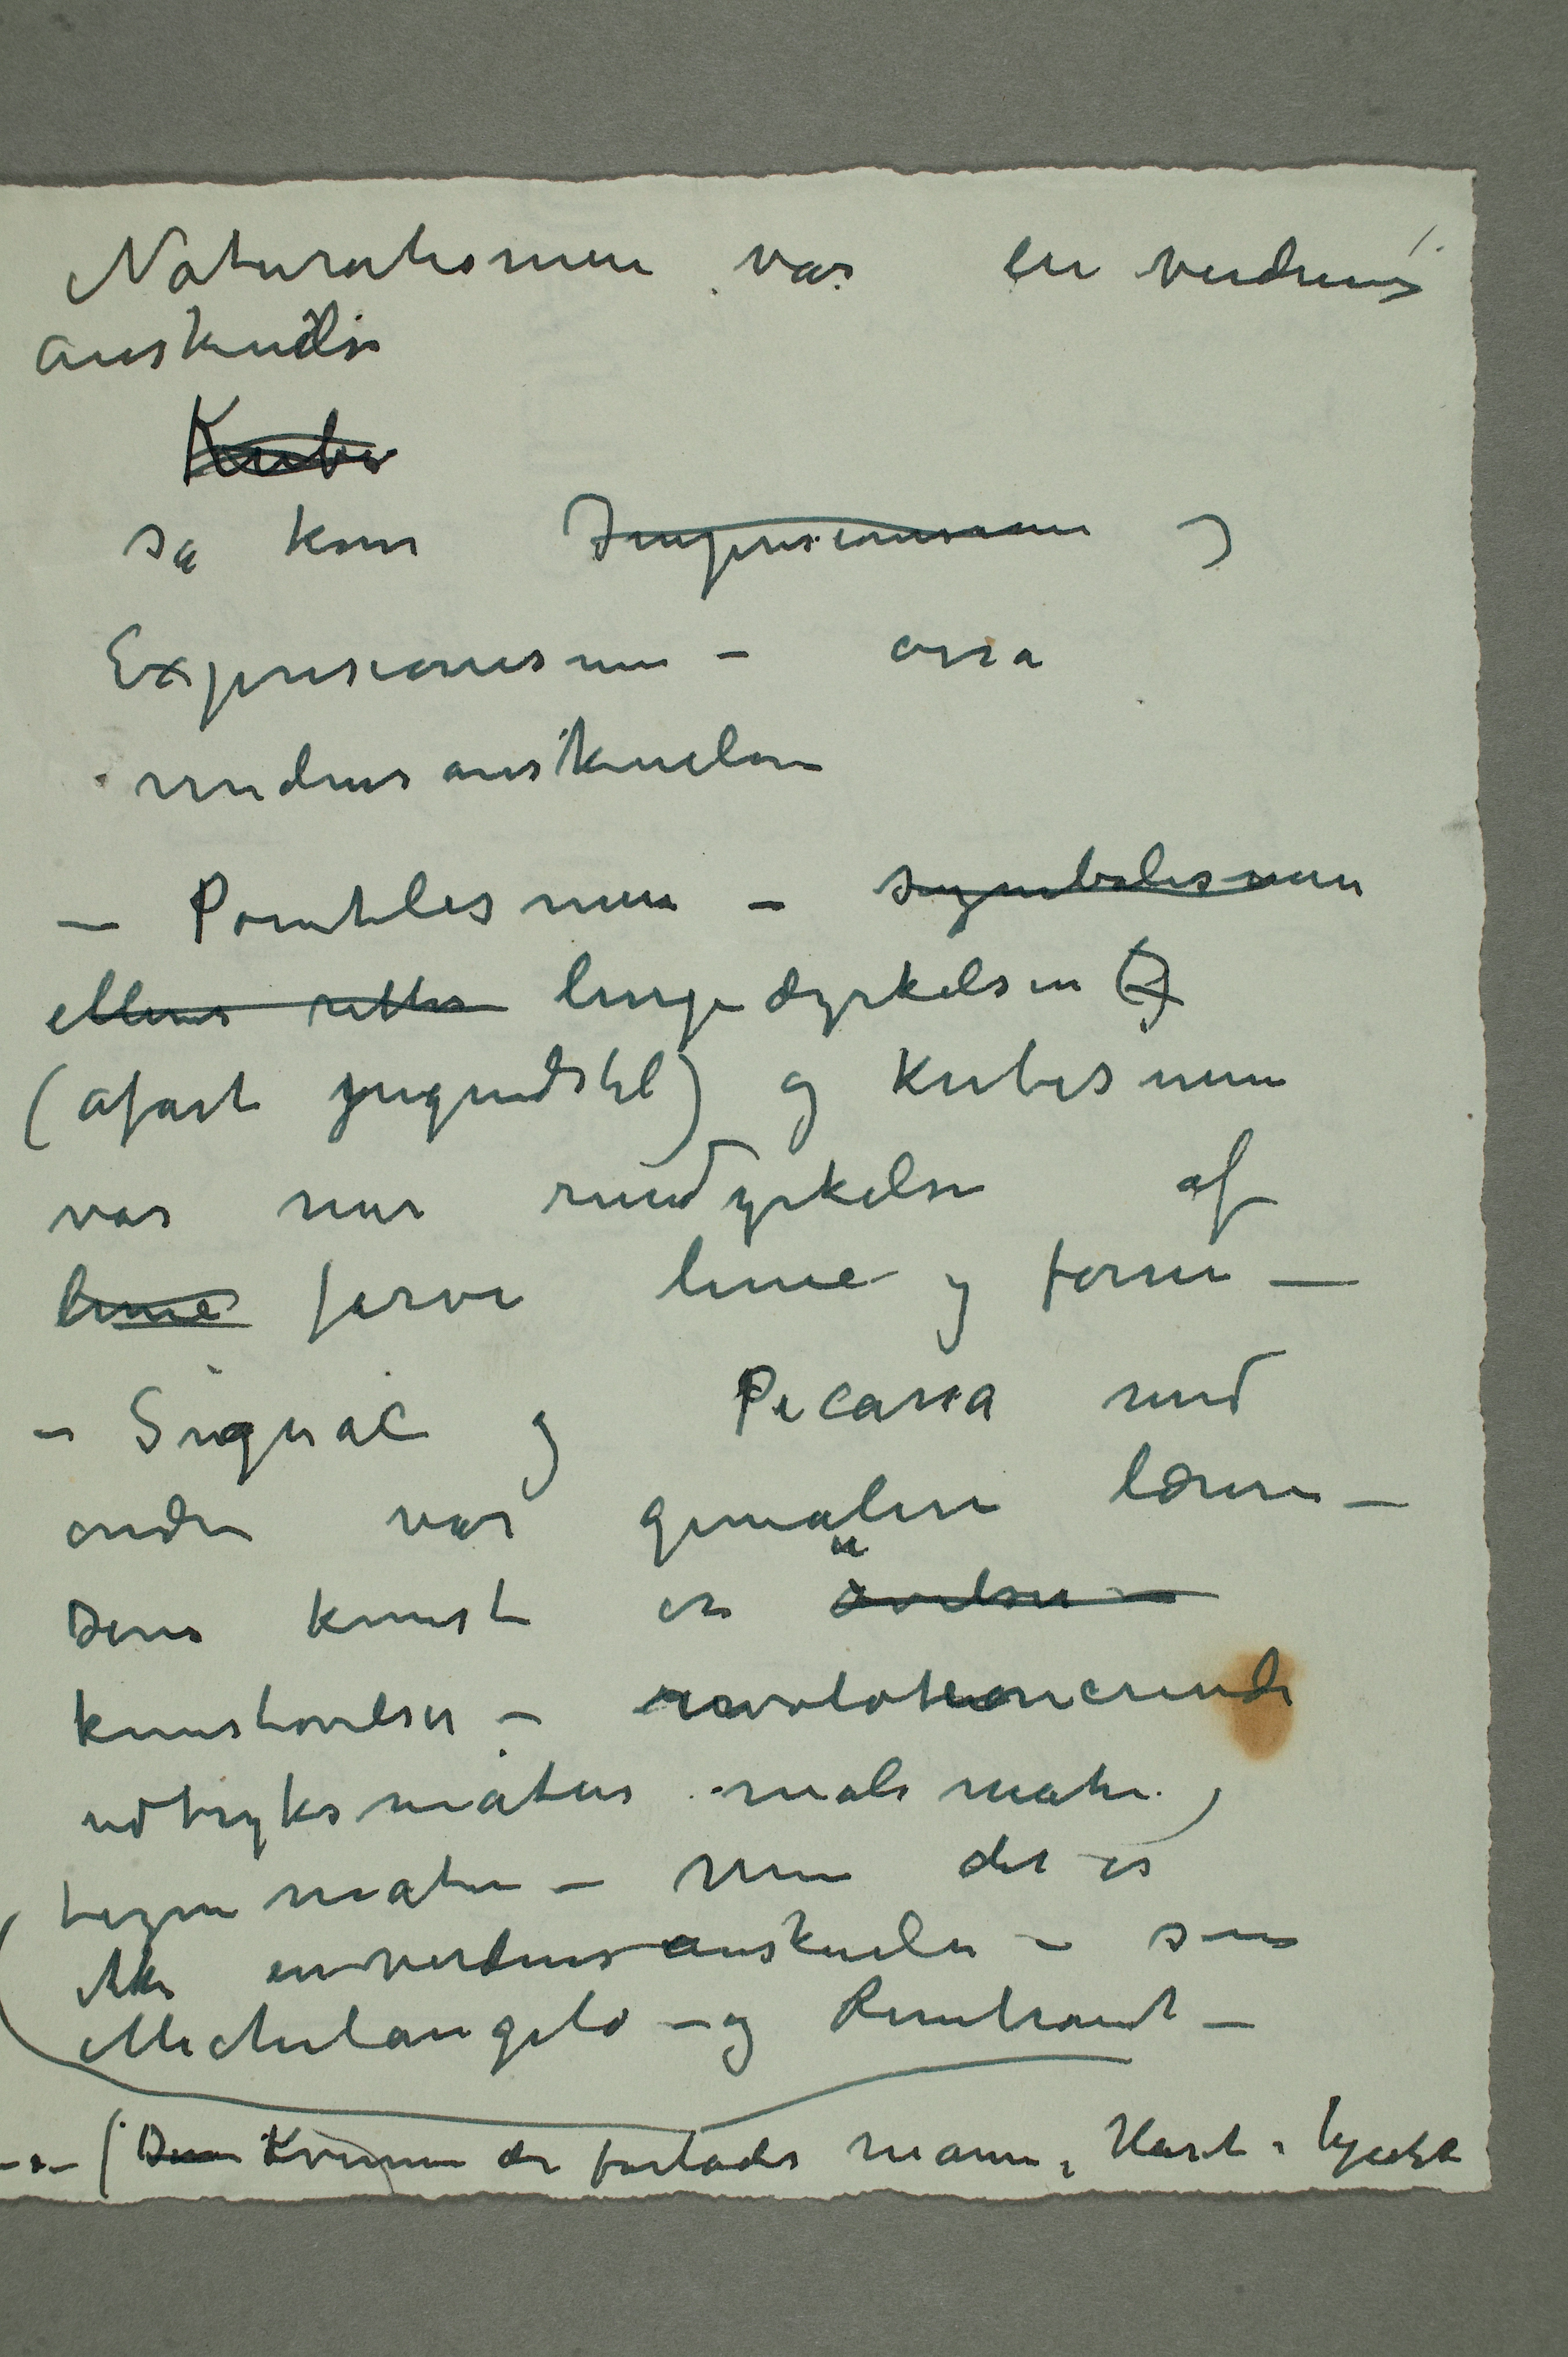 Naturalismen var en verdens
anskuelse
Kubi
så kom Impresionismen og
Expresionismen – også
verdensanskuelser
– Pointilismen – symbolismen
ellers rettere linjedyrkelsen og
(afart jugendstil) og Kubismen
var mer rendyrkelse af
linie farve linie og form –
– Signac og Picasso med
andre var geniale lærere –
Deres kunst er øvelser –
kunstøvelser – revolutionerende
udtryksmåter malemåte
tegnemåter – Men det er
ikke en verdensanskuelse – som
Michelangelo – og Rembrandt –
(Den Kvinnen der forlader mannen,